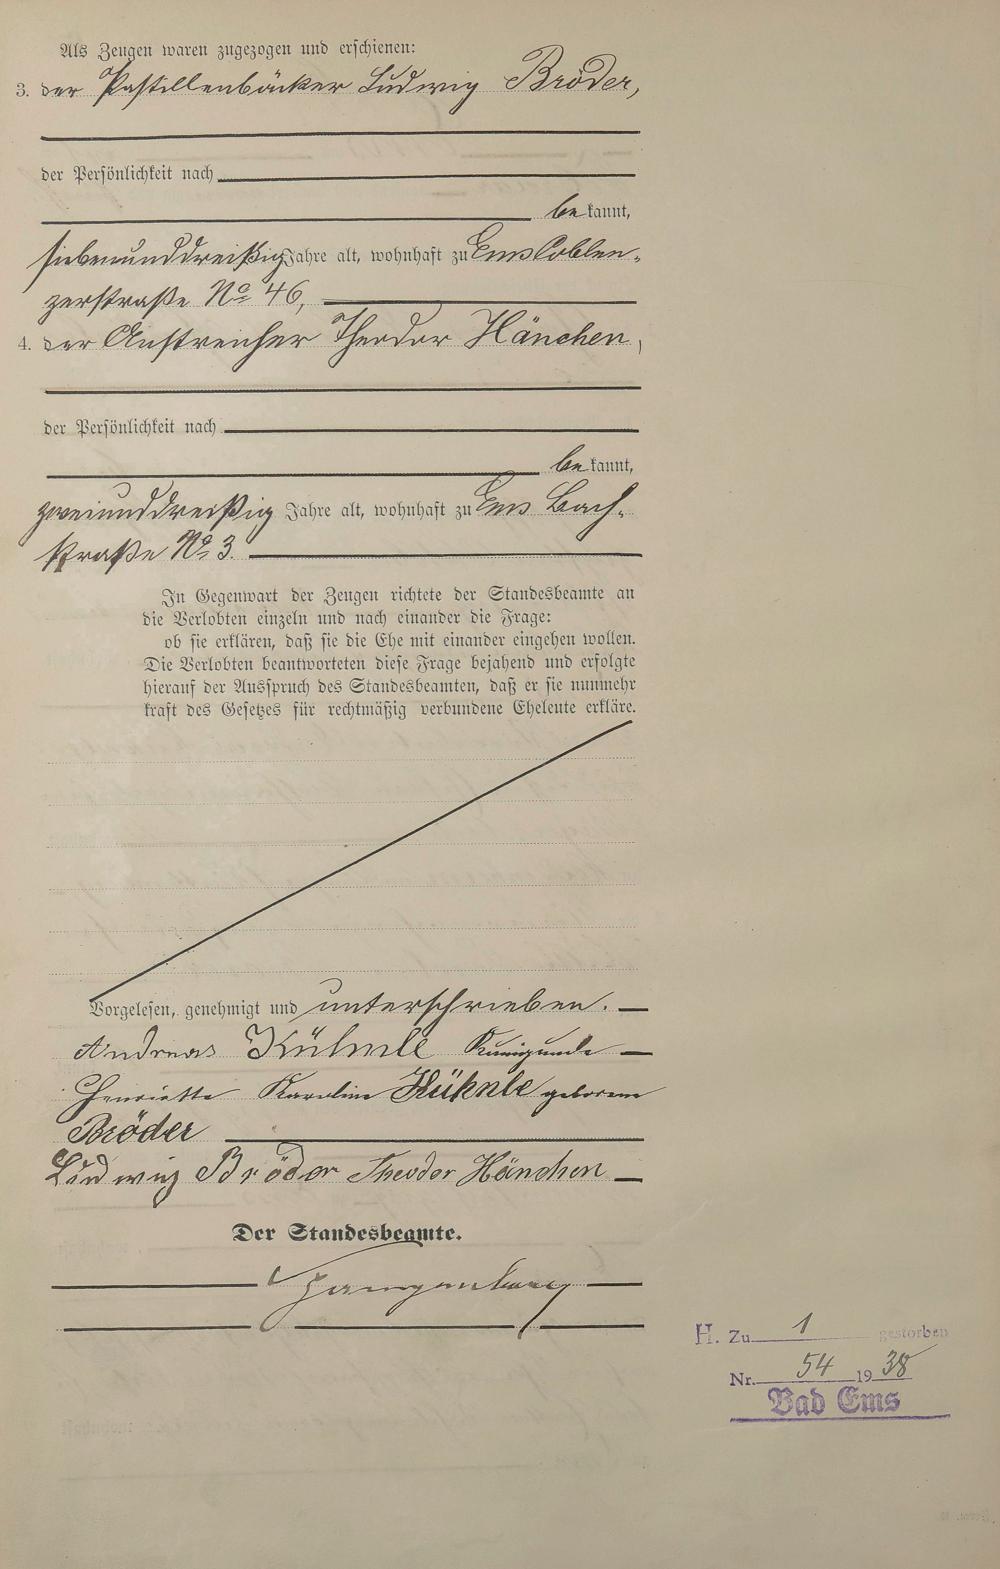 Als Zeugen waren zugezogen und erschienen:
3. der Pastillenbäcker Ludwig Bröder,
der Persönlichkeit nach
be kannt,
siebenunddreißig Jahre alt, wohnhaft zu Ems Coblen-
zerstraße No 46,
4. der Anstreicher Theodor Hänchen,
der Persönlichkeit nach
be kannt,
zweiunddreißig Jahre alt, wohnhaft zu Ems Bach-
straße No 3.
In Gegenwart der Zeugen richtete der Standesbeamte an
die Verlobten einzeln und nach einander die Frage:
ob sie erklären, daß sie die Ehe mit einander eingehen wollen.
Die Verlobten beantworteten diese Frage bejahend und erfolgte
hierauf der Ausspruch des Standesbeamten, daß er sie nunmehr
kraft des Gesetzes für rechtmäßig verbundene Eheleute erkläre.
Vorgelesen, genehmigt und unterschrieben.
Andreas Kühnle Kunigunde
Henriette Karoline Kühnle geborene
Bröder
Ludwig Bröder Theodor Hänchen
Der Standesbeamte.
H. Zu 1 gestorben
Nr. 54 1938
Bad Ems